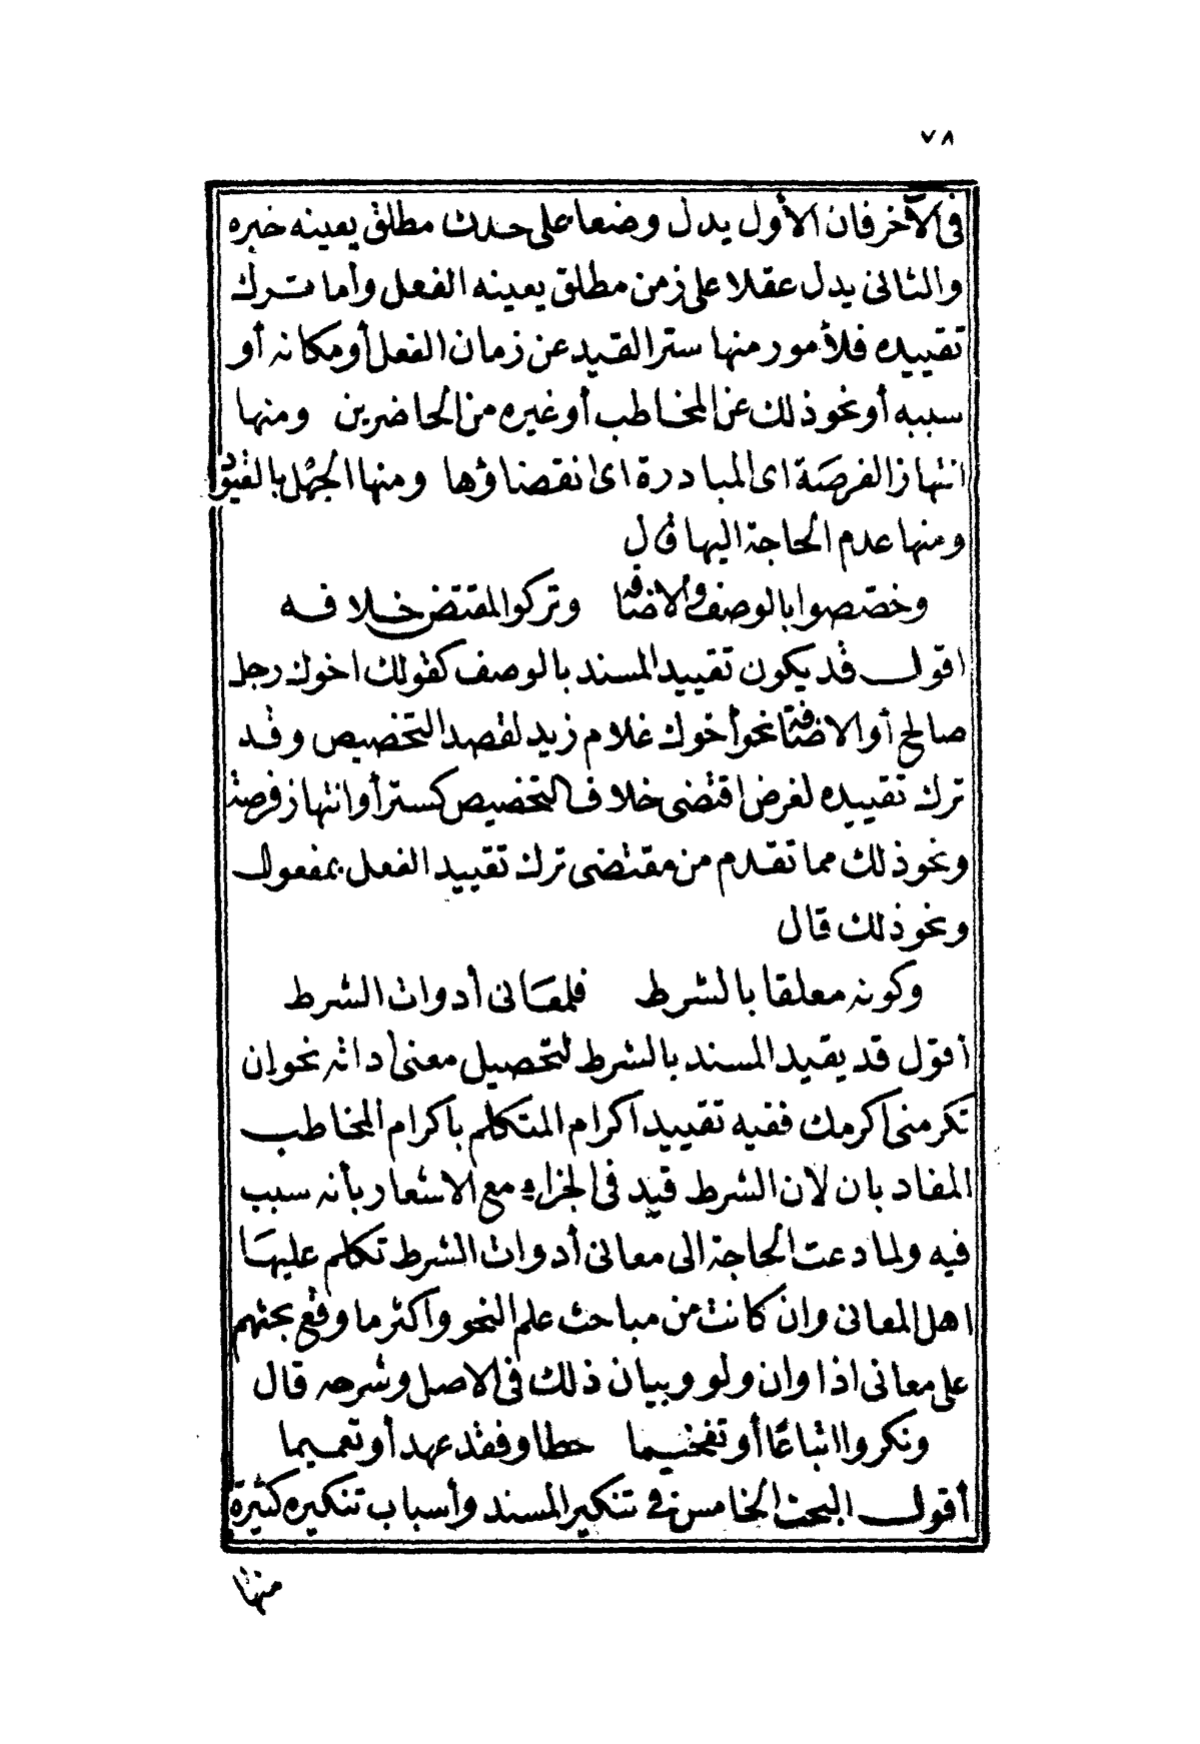 ٧٨
فى الآخر فان الأول يدل وضعا على حدث مطلق يعينه خبره
والثانى يدل عقلا على زمن مطلق يعينه الفعل وأما ترك
تقييده فلأمور منها ستر القيد عن زمان الفعل أو مكانه أو
سببه أو نحو ذلك عن المخاطب أو غيره من الحاضرين ومنها
انتهاز الفرصة اى المبادرة اى انقضاؤها ومنها الجهل بالقيود
ومنها عدم الحاجة اليها قال
وخصصوا بالوصف والاضافة وتركوا المقتض خلافه
اقول قد يكون تقييد المسند بالوصف كقولك اخوك رجل
صالح أو الاضافة نحو أخوك غلام زيد لقصد التخصيص وقد
ترك تقييده لغرض اقتضى خلاف التخصيص كستر أو انتهاز فرصة
ونحو ذلك مما تقدم من مقتضى ترك تقييد الفعل بمفعول
ونحو ذلك قال
وكونه معلقا بالشرط فلمعانى أدوات الشرط
أقول قد يقيد المسند بالشرط لتحصيل معنى أداته نحو إن
تكرمنى اكرمك ففيه تقييد اكرام المتكلم باكرام المخاطب
المفاد بان لان الشرط قيد فى الجزاء مع الاشعار بأنه سبب
فيه ولما دعت الحاجة الى معانى أدوات الشرط تكلم عليها
اهل المعانى وان كانت من مباحث علم النحو وأكثر ما وقع بحثهم
على معانى اذا وان ولو وبيان ذلك فى الاصل وشرحه قال
ونكروا اتباعًا أو تفخيما حطا وفقد عهد أو تعميما
أقول البحث الخامس فى تنكير المسند وأسباب تنكيره كثيرة
منها